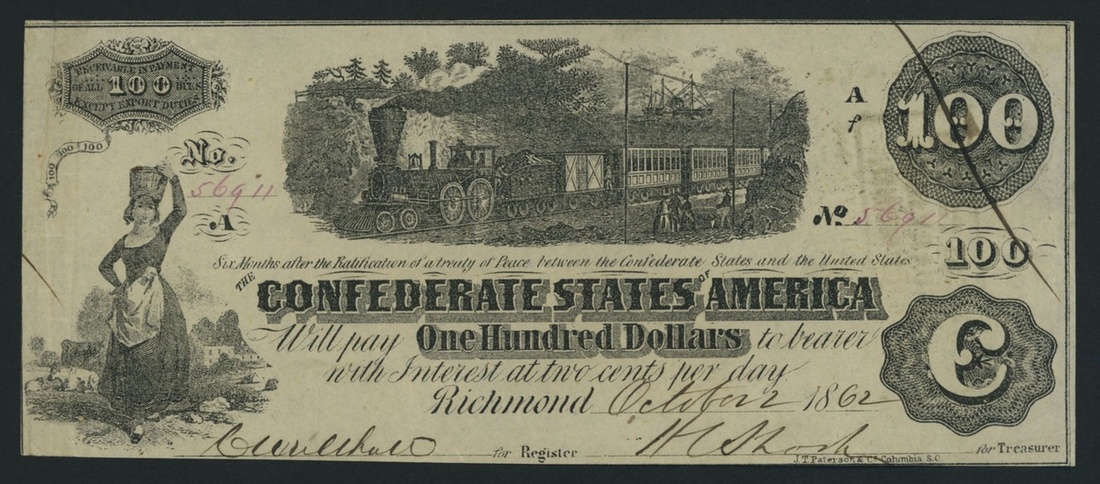 RECEIVABLE IN PAYMENT
OF ALL 100 DUES
EXCEPT EXPORT DUTIES
100
100
No.
56911
A
A
f
100
No 56911
100
Six Months after the Ratification of a treaty of Peace between the Confederate States and the United States
THE CONFEDERATE STATES OF AMERICA
Will pay One Hundred Dollars to bearer
with Interest at two cents per day.
Richmond October 2 1862
C
for Register
for Treasurer
J.T. Paterson & Co Columbia S.C.